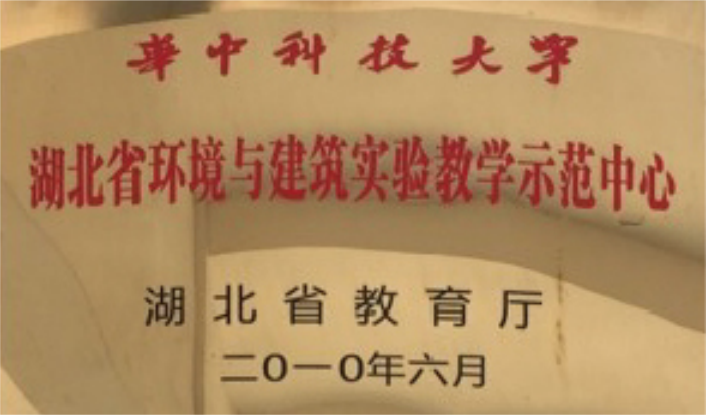 華中科技大学
湖北省环境与建筑实验教学示范中心
湖北省教育厅
二O一O年六月